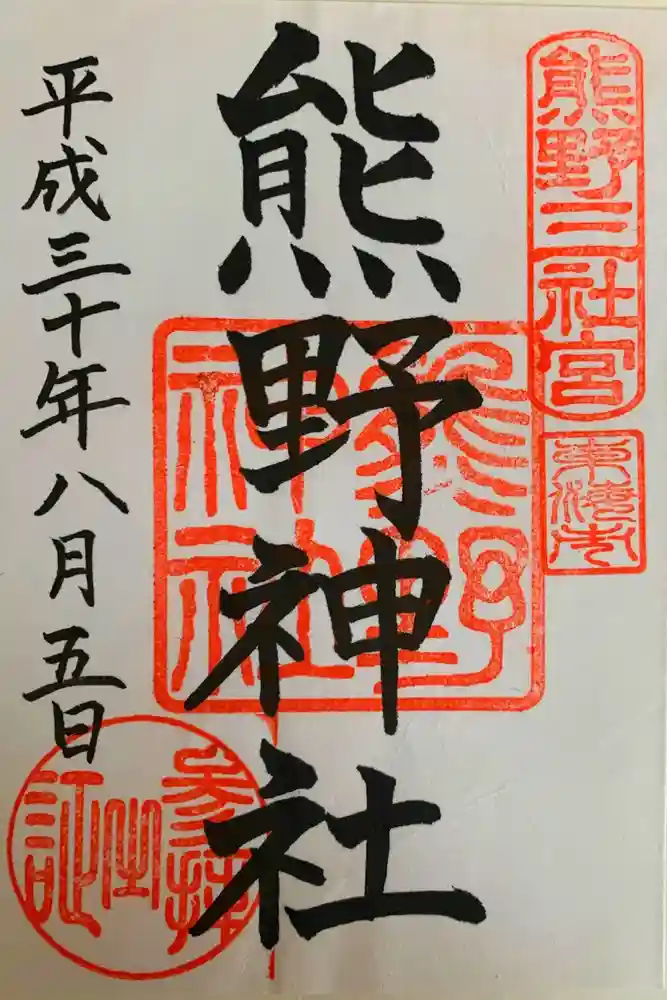 熊野三社宮
東海市
熊野神社
熊野
神社
平成三十年八月五日
参拝
之
証